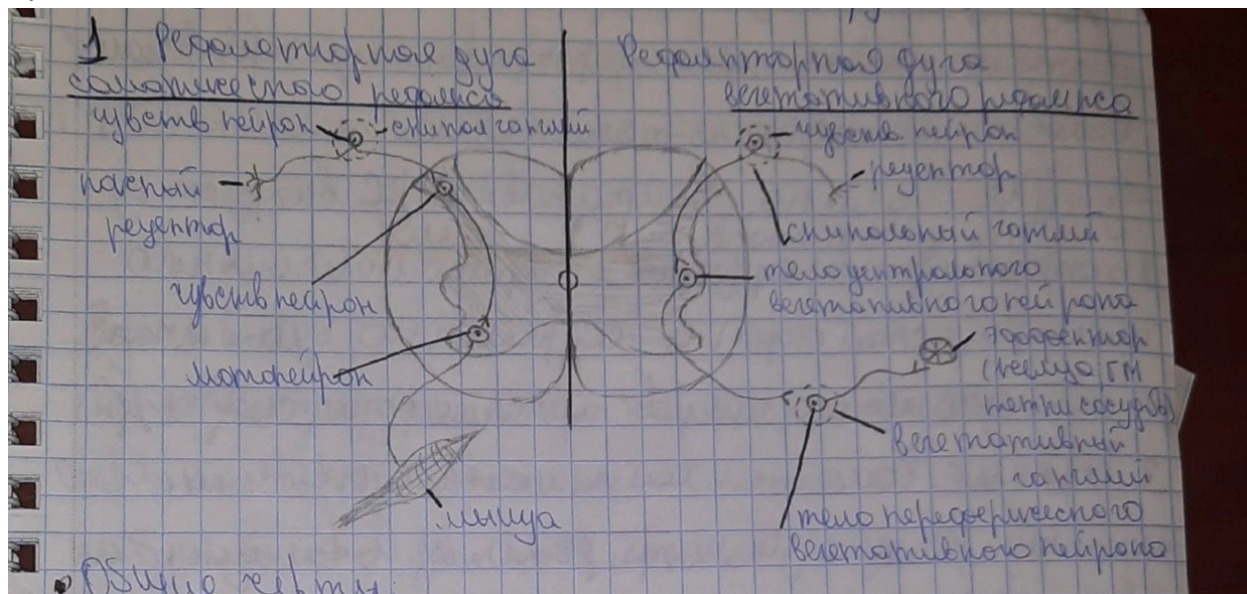 1 Рефлекторная дуга
соматического рефлекса
чувств нейрон
спинал ганглий
кожный
рецептор
чувств нейрон
мотонейрон
мышца
Рефлекторная дуга
вегетативного рефлекса
чувств. нейрон
рецептор
спинальный ганглий
тело центрального
вегетативного нейрона
эффектор
(железа, ГМ
сосуды)
вегетативный
ганглий
тело переферического
вегетативного нейрона
• Общие черты: